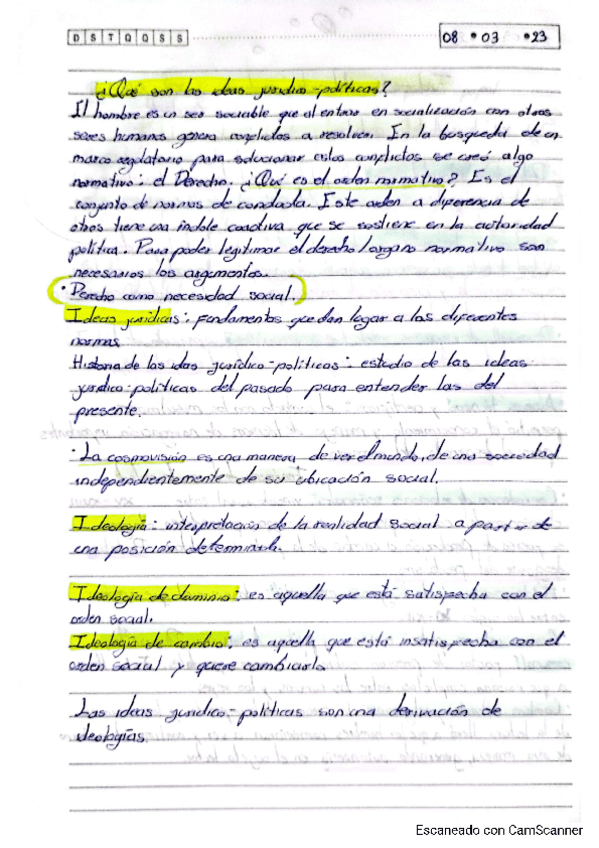 D S T Q Q S S
08 • 03 • 23
¿Qué son las ideas jurídico-políticas?
El hombre es un ser sociable que al entrar en socialización con otros
seres humanos genera conflictos a resolver. En la busqueda de un
marco regulatorio para solucionar estos conflictos se creó algo
normativo: el Derecho. ¿Qué es el orden normativo? Es el
conjunto de normas de conducta. Este orden a diferencia de
otros tiene una índole coactiva que se sostiene en la autoridad
política. Para poder legitimar el derecho/organo normativo son
necesarios los argumentos.
· Derecho como necesidad social.
Ideas jurídicas: fundamentos que dan lugar a las diferentes
normas
Historia de las ideas jurídico-políticas: estudio de las ideas
jurídico-políticas del pasado para entender las del
presente.
· La cosmovisión es una manera de ver el mundo, de una sociedad
independientemente de su ubicación social.
Ideología: interpretación de la realidad social a partir de
una posición determinada.
Ideología de dominio: es aquella que está satisfecha con el
orden social.
Ideología de cambio: es aquella que está insatisfecha con el
orden social y quiere cambiarlo
Las ideas jurídico-políticas son una derivación de
ideologías.
Escaneado con CamScanner